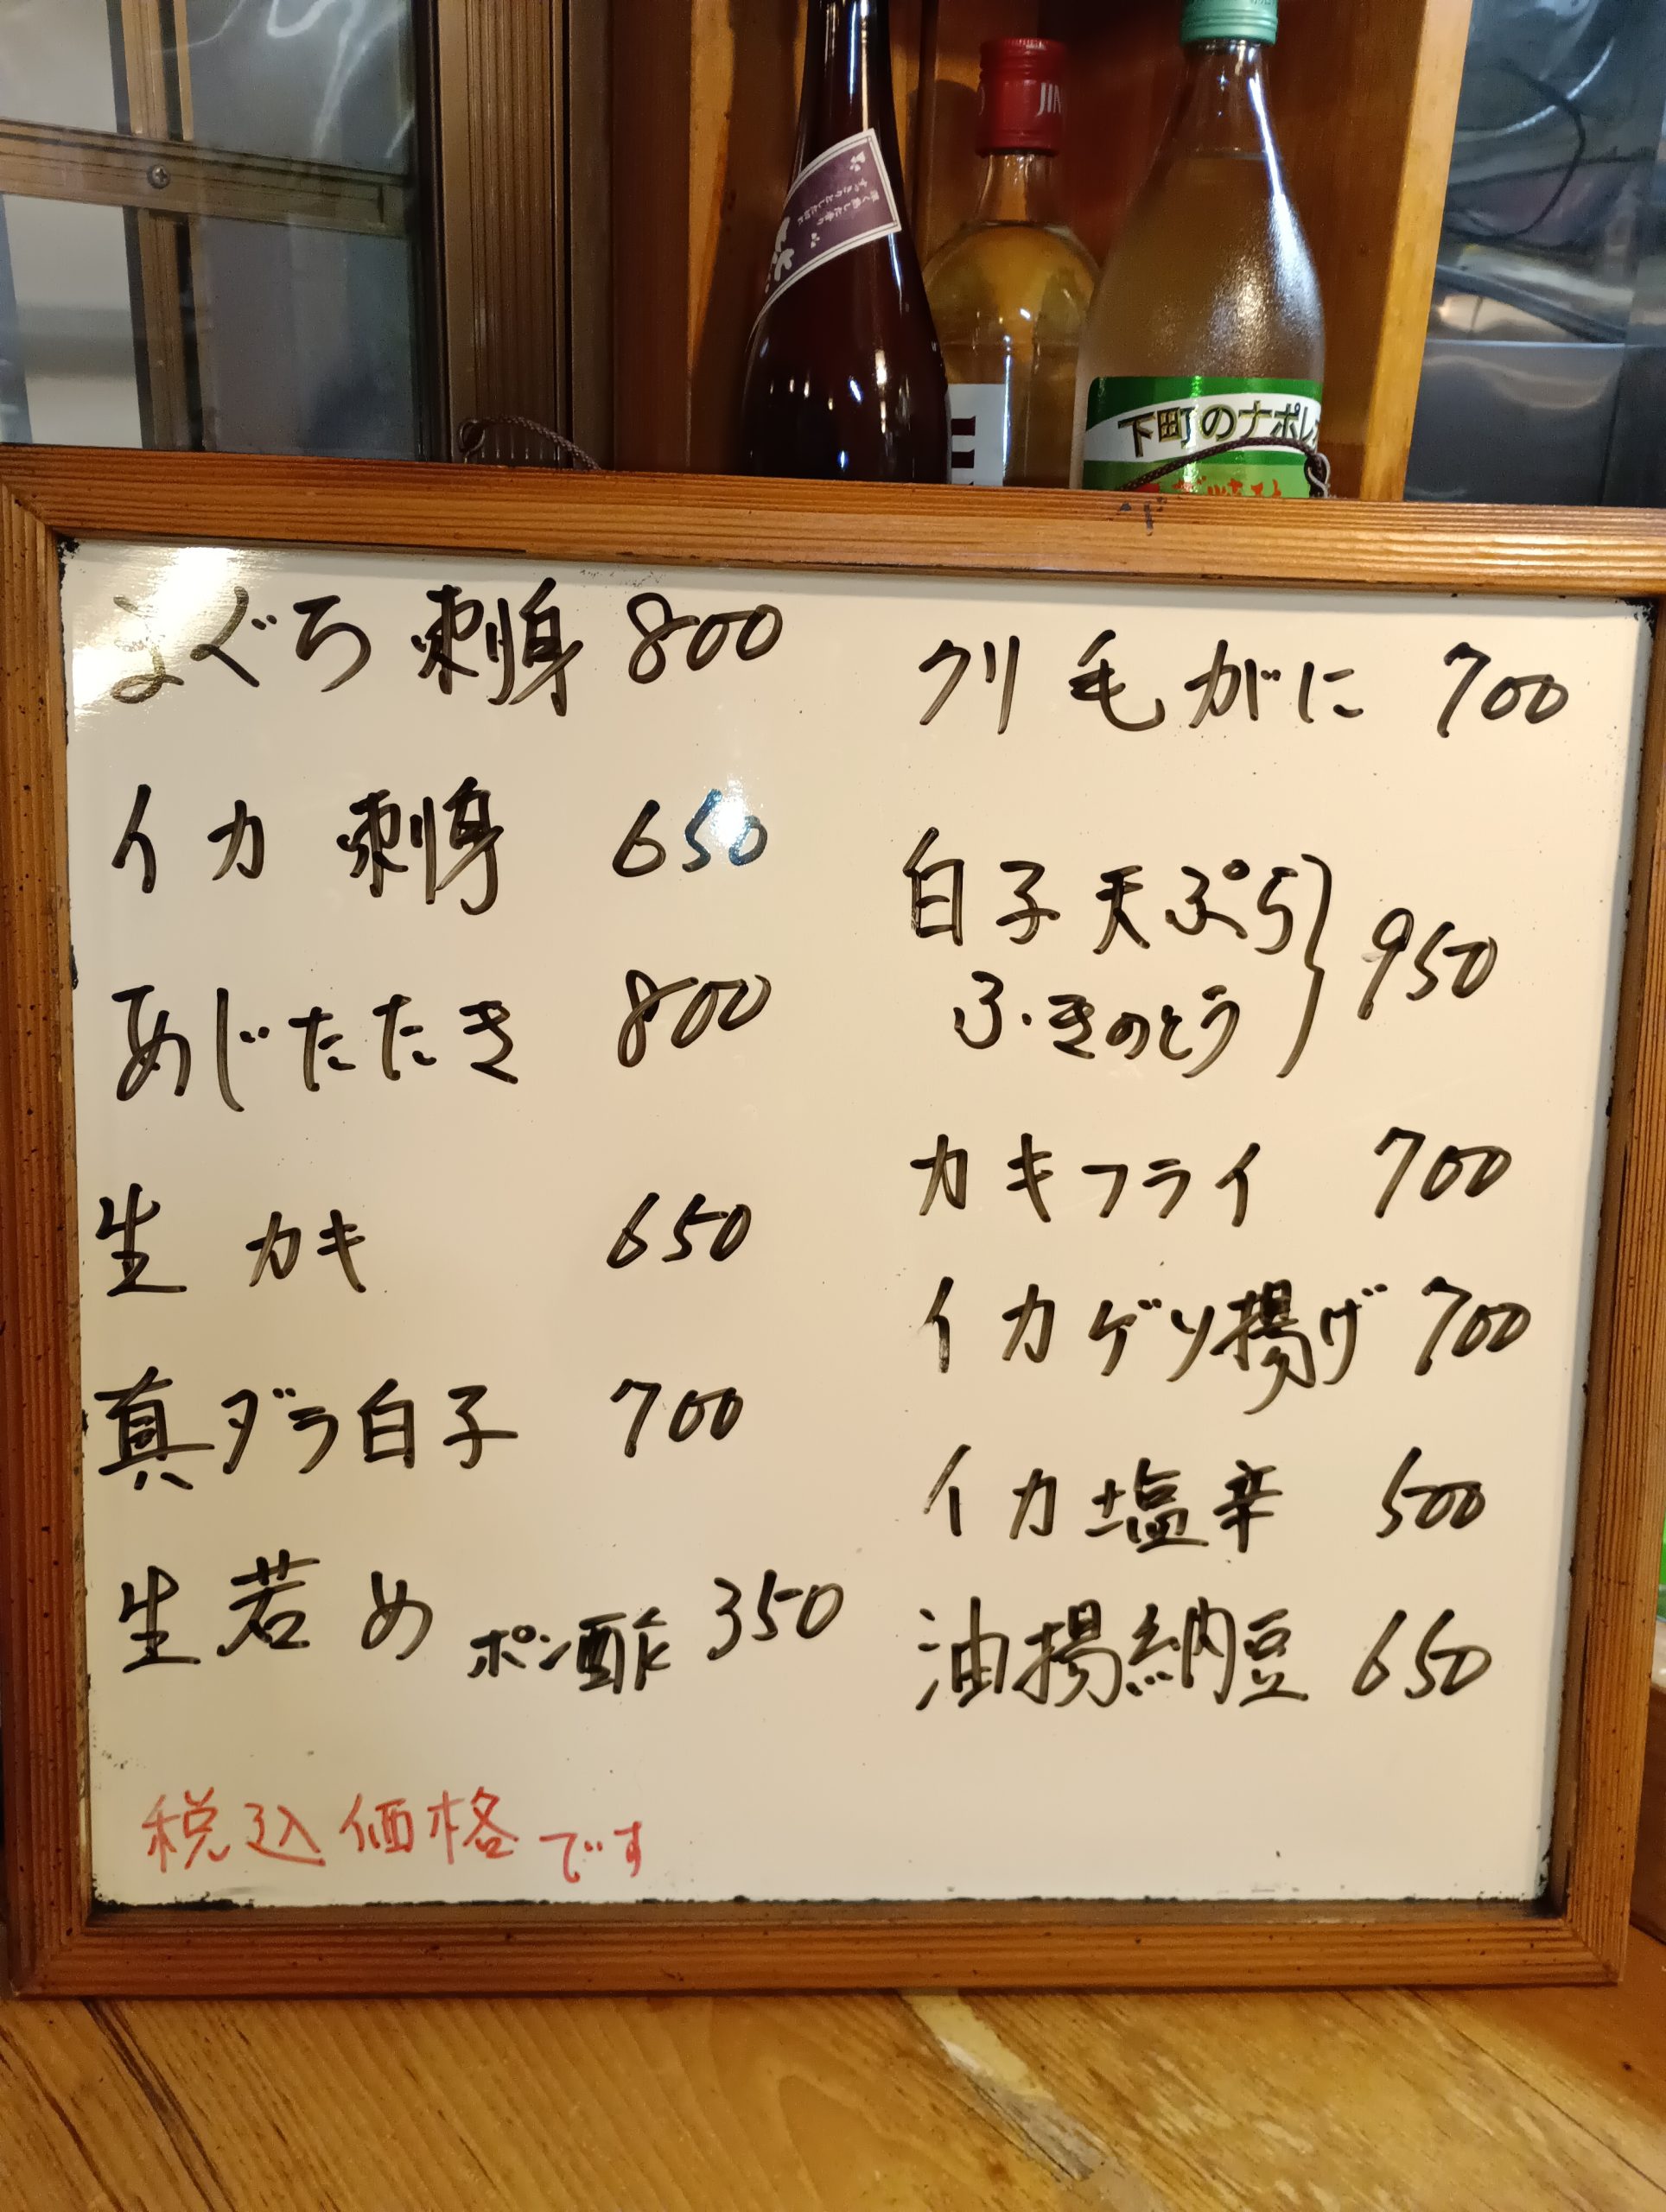 JIN
下町のナポレ
まぐろ 刺身 800
イカ 刺身 650
あじたたき 800
生 カキ 650
真ダラ白子 700
生若め ポン酢 350
税込価格です
クリ毛がに 700
白子天ぷら
ふきのとう } 950
カキフライ 700
イカゲソ揚げ 700
イカ塩辛 500
油揚納豆 650